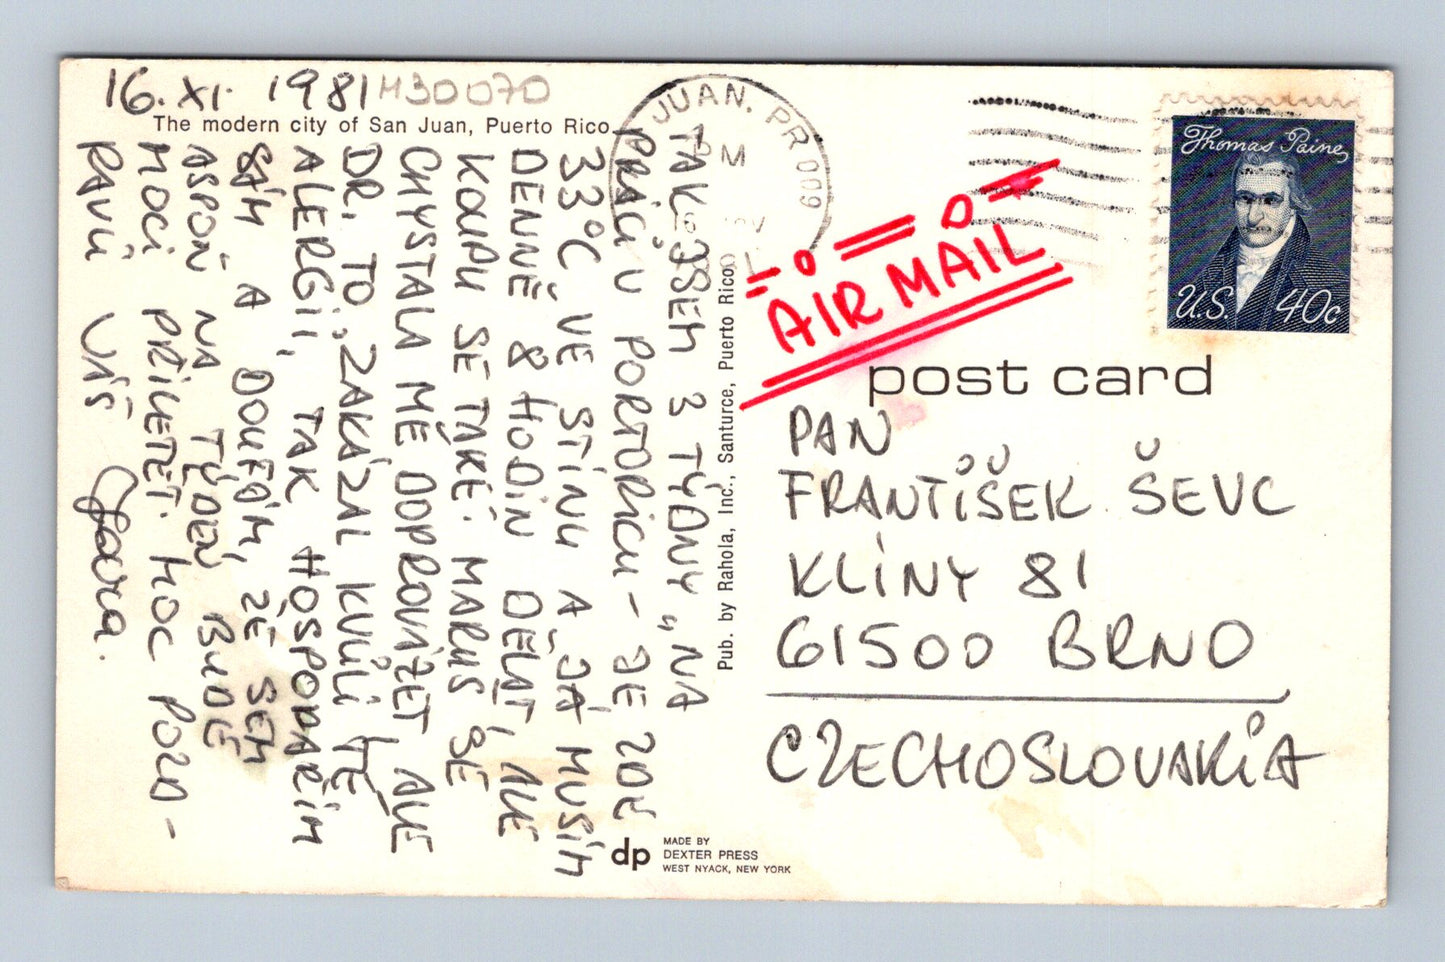 16. XI. 1981
H30070
The modern city of San Juan, Puerto Rico.
TAK JSEM 3 TÝDNY „NA
PRÁCI V PORTORICU - JE ZDE
33°C VE STÍNU A JÁ MUSÍM
DENNĚ 8 HODIN DĚLAT, ALE
KOUPU SE TAKÉ. MARUŠ SE
CHYSTALA MĚ DOPROVÁZET ALE
DR. TO „ZAKÁZAL KVŮLI TÉ
ALERGII, TAK HOSPODAŘÍM
SÁM A DOUFÁM, ŽE SEM
ASPOŇ NA TÝDEN BUDE
MOCI PŘILETĚT. MOC POZD-
RAVUJ VÁŠ Jara.
Pub. by Rahola, Inc., Santurce, Puerto Rico.
JUAN, PR 009
AIR MAIL
Thomas Paine
U.S. 40c
post card
PAN
FRANTIŠEK ŠEVC
KLÍNY 81
61500 BRNO
CZECHOSLOVAKIA
dp
MADE BY
DEXTER PRESS
WEST NYACK, NEW YORK